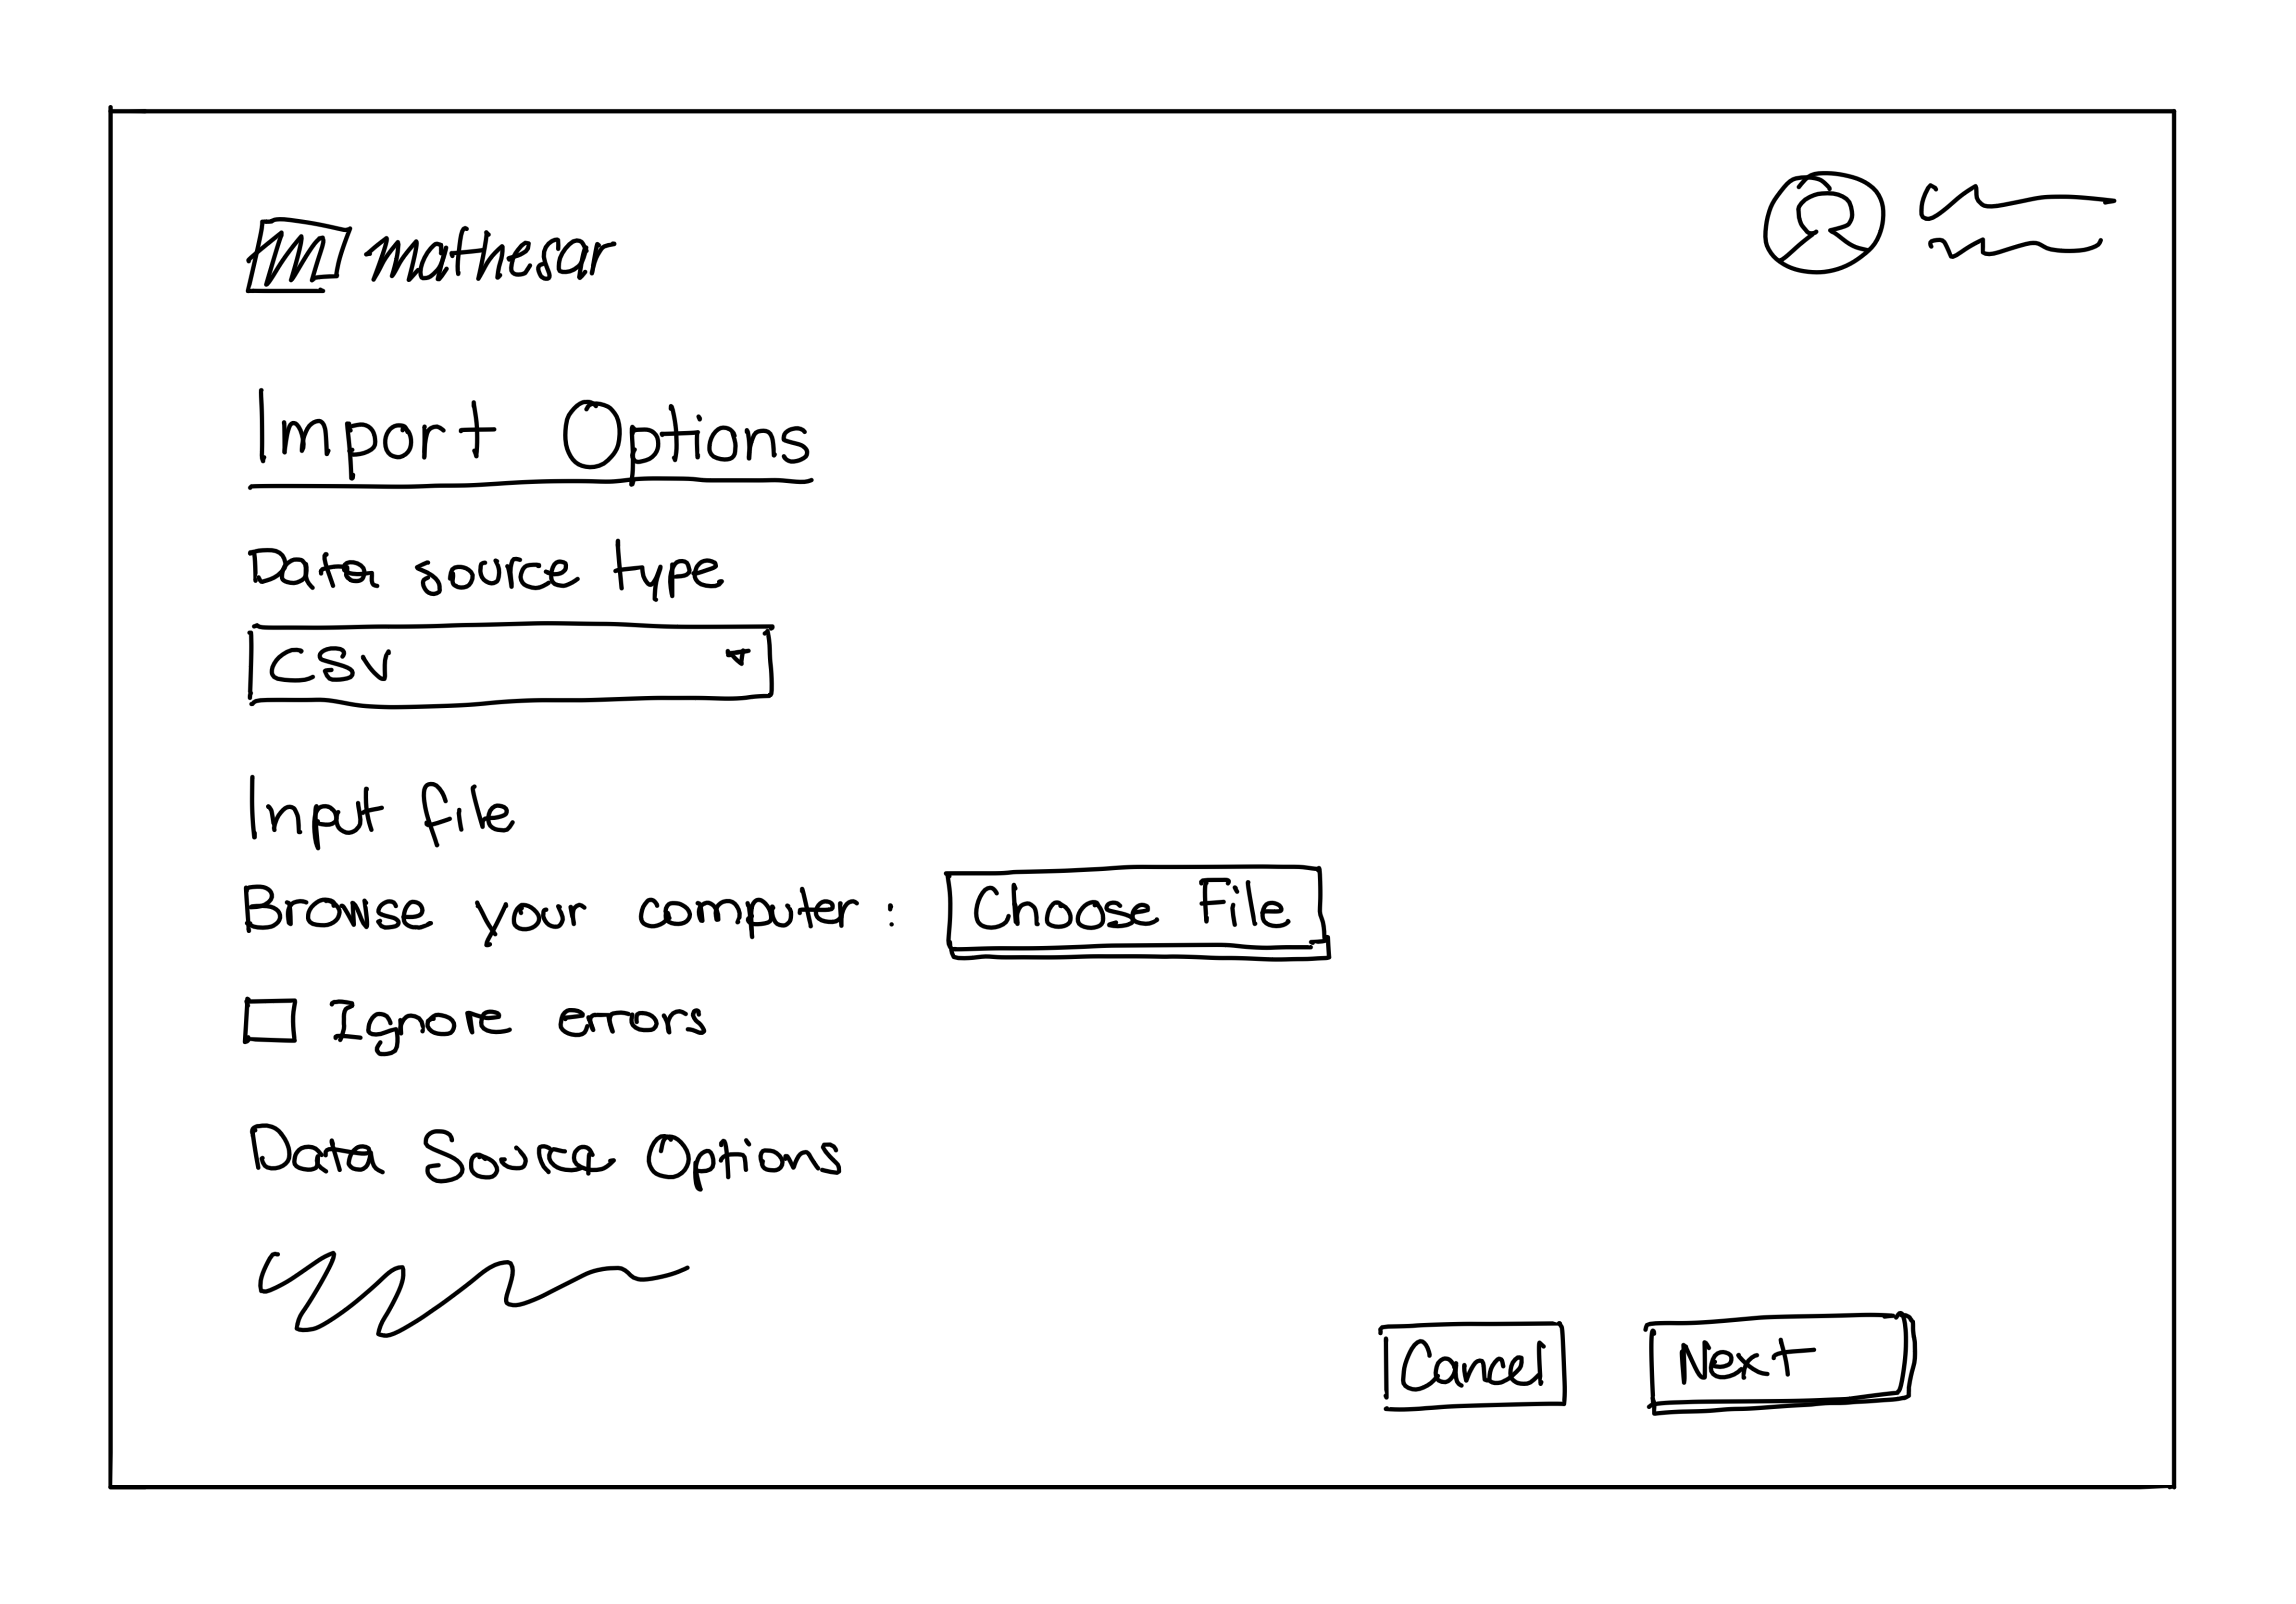 M mathesar
Import Options
Data source type
CSV
Input file
Browse your computer: Choose File
Ignore errors
Data Source Options
Cancel Next